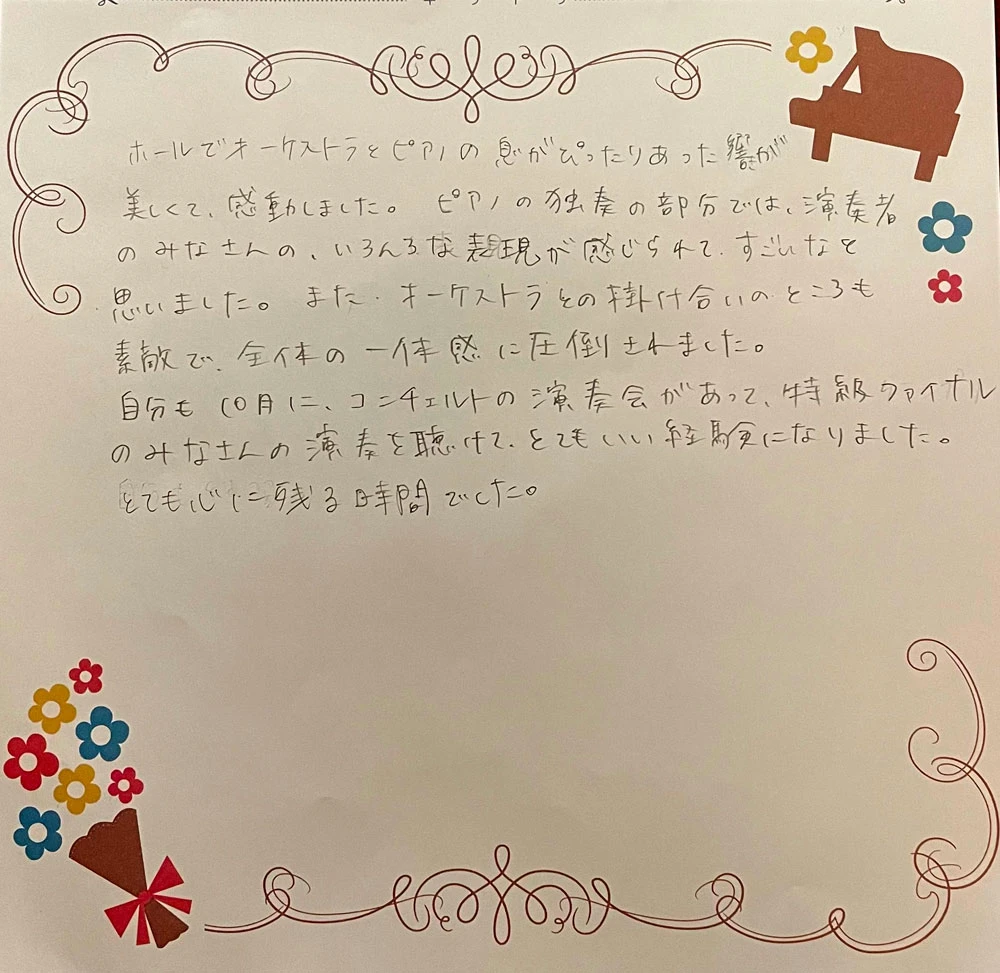 ホールでオーケストラとピアノの息がぴったりあった響が
美しくて、感動しました。ピアノの独奏の部分では、演奏者
のみなさんの、いろんな表現が感じられて、すごいなと
思いました。また、オーケストラとの掛け合いのところも
素敵で、全体の一体感に圧倒されました。
自分も10月に、コンチェルトの演奏会があって、特級ファイナル
のみなさんの演奏を聴けて、とてもいい経験になりました。
とても心に残る時間でした。